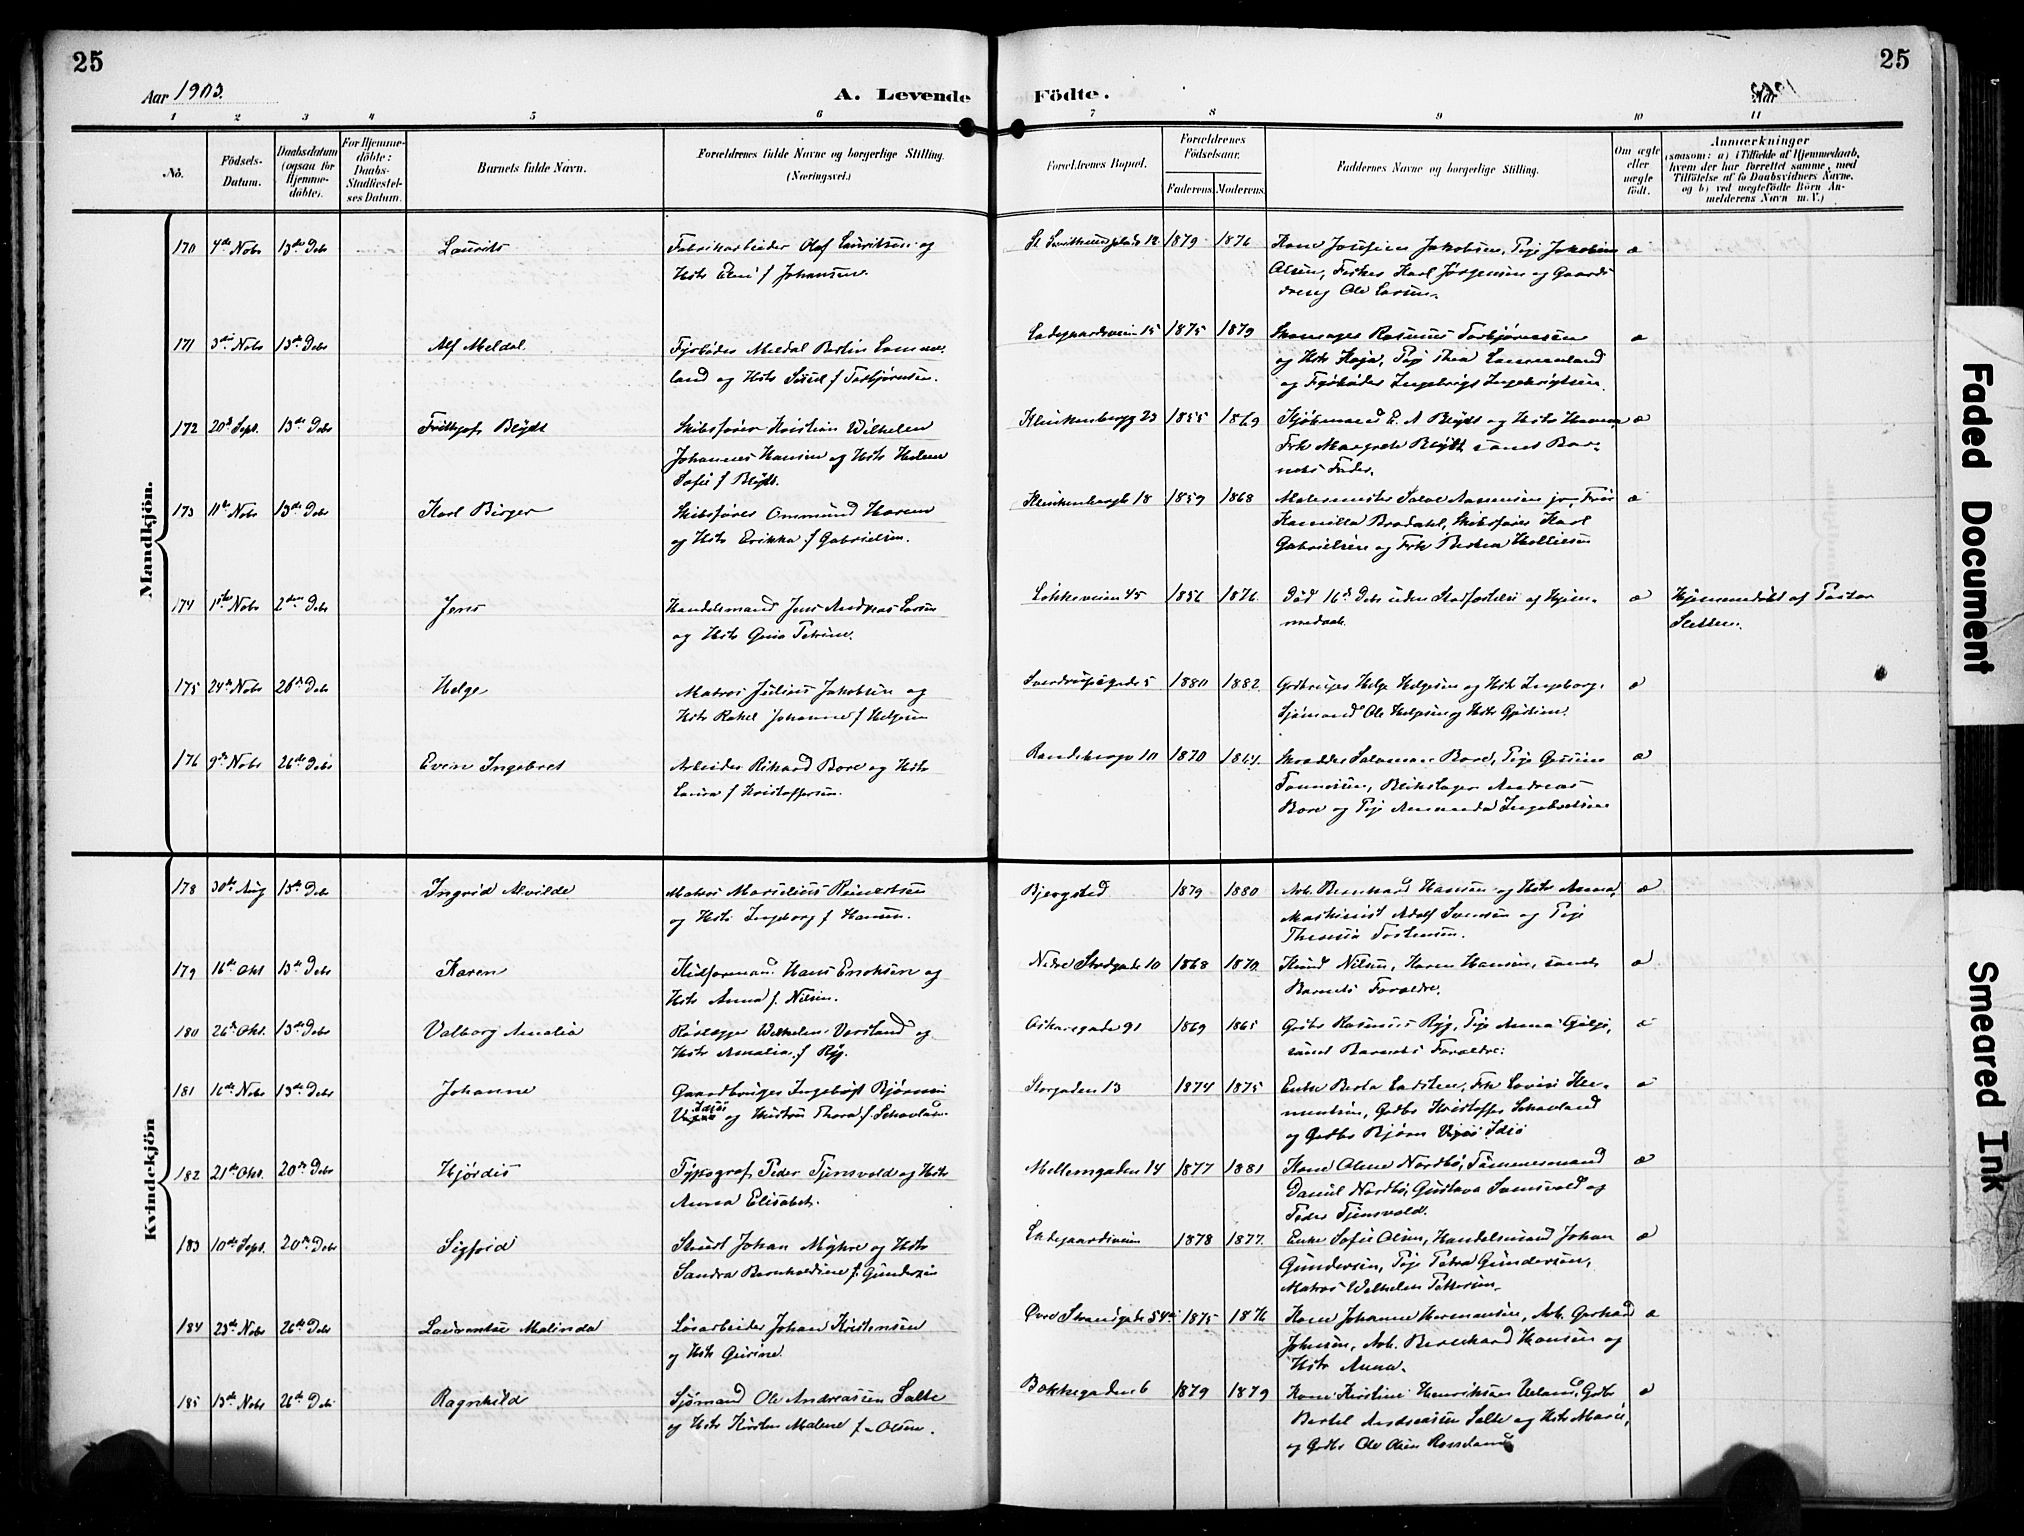 25
Aar 1903.
A. Levende
Födte.
25
Aar
1 2 3 4 5 6 7 8 9 10 11
No.
Födsels-
Datum.
Daabsdatum
(ogsaa for
Hjemme-
döbte).
For Hjemme-
döbte:
Daabs-
Stadfæstel-
ses Datum.
Barnets fulde Navn.
Forældrenes fulde Navne og borgerlige Stilling.
(Næringsvei.)
Forældrenes Bopæl.
Forældrenes
Födselsaar.
Faderens.
Moderens.
Faddernes Navne og borgerlige Stilling.
Om ægte
eller
uægte
födt.
Anmærkninger
(saasom: a) i Tilfælde af Hjemmedaab,
hvem der har forrettet samme, med
Tilföielse af to Daabsvidners Navne,
og b) ved uægtefödte Börn An-
melderens Navn m. V.)
Mandkjön.
170 4de Novb 13de Deb Laurits Fabrikarbeider Olaf Lauritsen og
Hst Elen f Johansen.
1879 1876 Kone Josefine Jakobsen, Pige Jakobine
Olsen, Fisker Karl Jørgensen og Gaards
dreng Ole Larsen.
æ
171 3die Novb 13de Deb Alf Meldal
land og Hst f Torbjørnsen.
Ladegaardsveien 15 1875 1879 Rasmus Torbjørnsen
og Hst Kaja, Pige Thea
og Ingebrigt Ingebrigtsen
æ
172 20d Sept. 13de Deb Fritthjof Blydt Skibsfører Kristian Wilhelm
Johannes Hansen og Hst Helene
Sofie f Blydt.
Klinkenbergg 23 1855 1869 Kjøbmand E. A Blydt og Hst Hanna
Frk Margrete Blydt samt Bar-
nets Fader.
æ
173 11te Novb 13de Deb Karl Birger Skibsfører Ommund Haven
og Hst Erikka f Gabrielsen.
Klinkenbergb 18 1859 1868
Kamilla Bradahl, Skibsfører Karl
Gabrielsen og Frk
æ
174 1ste Novb 2den Deb Jens Handelsmand Jens Andreas Larsen
og Hst Gina Petrine.
Løkkeveien 45 1856 1876 Død 16de Deb uden Stadfæstelse af Hjem-
medaab.
æ Hjemmedøbt af Pastor
Sletten.
175 24de Novb 26de Deb Helge Matros Julius Jakobsen og
Hst Rakel Johanne f Helgesen
Sverdrupsgade 5 1880 1882 Helge Helgesen og Hst Ingeborg,
Sjømand Ole Helgesen og Hst
æ
176 9de Novb 26de Deb Even Ingebret Arbeider Rikard Bore og Hst
Laura f Kristoffersen.
Randabergv 10 1870 1864 Skrædder Salomon Bore, Pige Gurine
Tønnesen, Blikslager Andreas
Bore og Pige Amanda Ingebretsen
æ
Kvindekjön
178 30te Aug 13de Deb Ingrid Alvilde Matros Marselius Reinertsen
og Hst. Ingeborg f Hansen.
Bjergsted 1879 1880 Arb. Bernhard Hansen og Hst Anna,
Maskinist Adolf Svensen og Pige
Theresia Torstensen.
æ
179 16de Okt 13de Deb Karen Hans Enoksen og
Hst Anna f. Nilsen.
Nedre Strdgade 10 1868 1870 Knud Nilsen, Karen Hansen, samt
Barnets Forældre.
æ
180 26de Okt. 13de Deb Valborg Amalia Wilhelm Varsland og
Hst Amalia f Ryg.
Oskarsgade 91 1869 1865 Rasmus Ryg, Pige Anna Gilje,
samt Barnets Forældre.
æ
181 16de Novb 13de Deb Johanne Gaardbruger Ingebrigt Bjørnsen
Idsøe og Hustru Thora f. Schavland
Storgaden 13 1874 1875 Enke Berta Ladsten, Frk Lovise Kle-
mentsen, Gaardbr Kristoffer Schavland
og Gaardbr Bjørn Idsø
æ
182 21de Okt. 20de Deb Hjørdis Typograf Peder Tjensvold og Hst
Anna Elisabet.
Mellemgaden 14 1877 1881 Kone Oline Nordbø, Tømmermand
Daniel Nordbø, Gustava Tjensvold og
Peder Tjensvold.
æ
183 10de Sept. 20de Deb Sigfrid Johan Myhre og Hst
Sandra Bernholdine f. Gundersen
Ladegaardsveien 1878 1877. Enke Sofie Olsen, Handelsmand Johan
Gundersen, Pige Petra Gundersen,
Matros Wilhelm Pettersen.
æ
184 23de Novb 26de Deb Laurentse Malinda Løsarbeider Johan Kristensen
og Hst Gurine.
Øvre Strandgade 54 1875 1876 Kone Johanne Hermansen, Arb. Gerhard
Johnsen, Arb. Bernhard Hansen og
Hst Anna.
æ
185 13de Novb 26de Deb Ragnhild Sjømand Ole Andreassen Salte
og Hst Kirsten Malene f. Olsen.
Bakkegaden 6 1879 1879 Kone Kirstine Henriksen Ueland, Gdbr
Bertel Andreassen Salte og Hst Marie,
og Gdbr Ole Olsen
æ
Faded Document
Smeared Ink